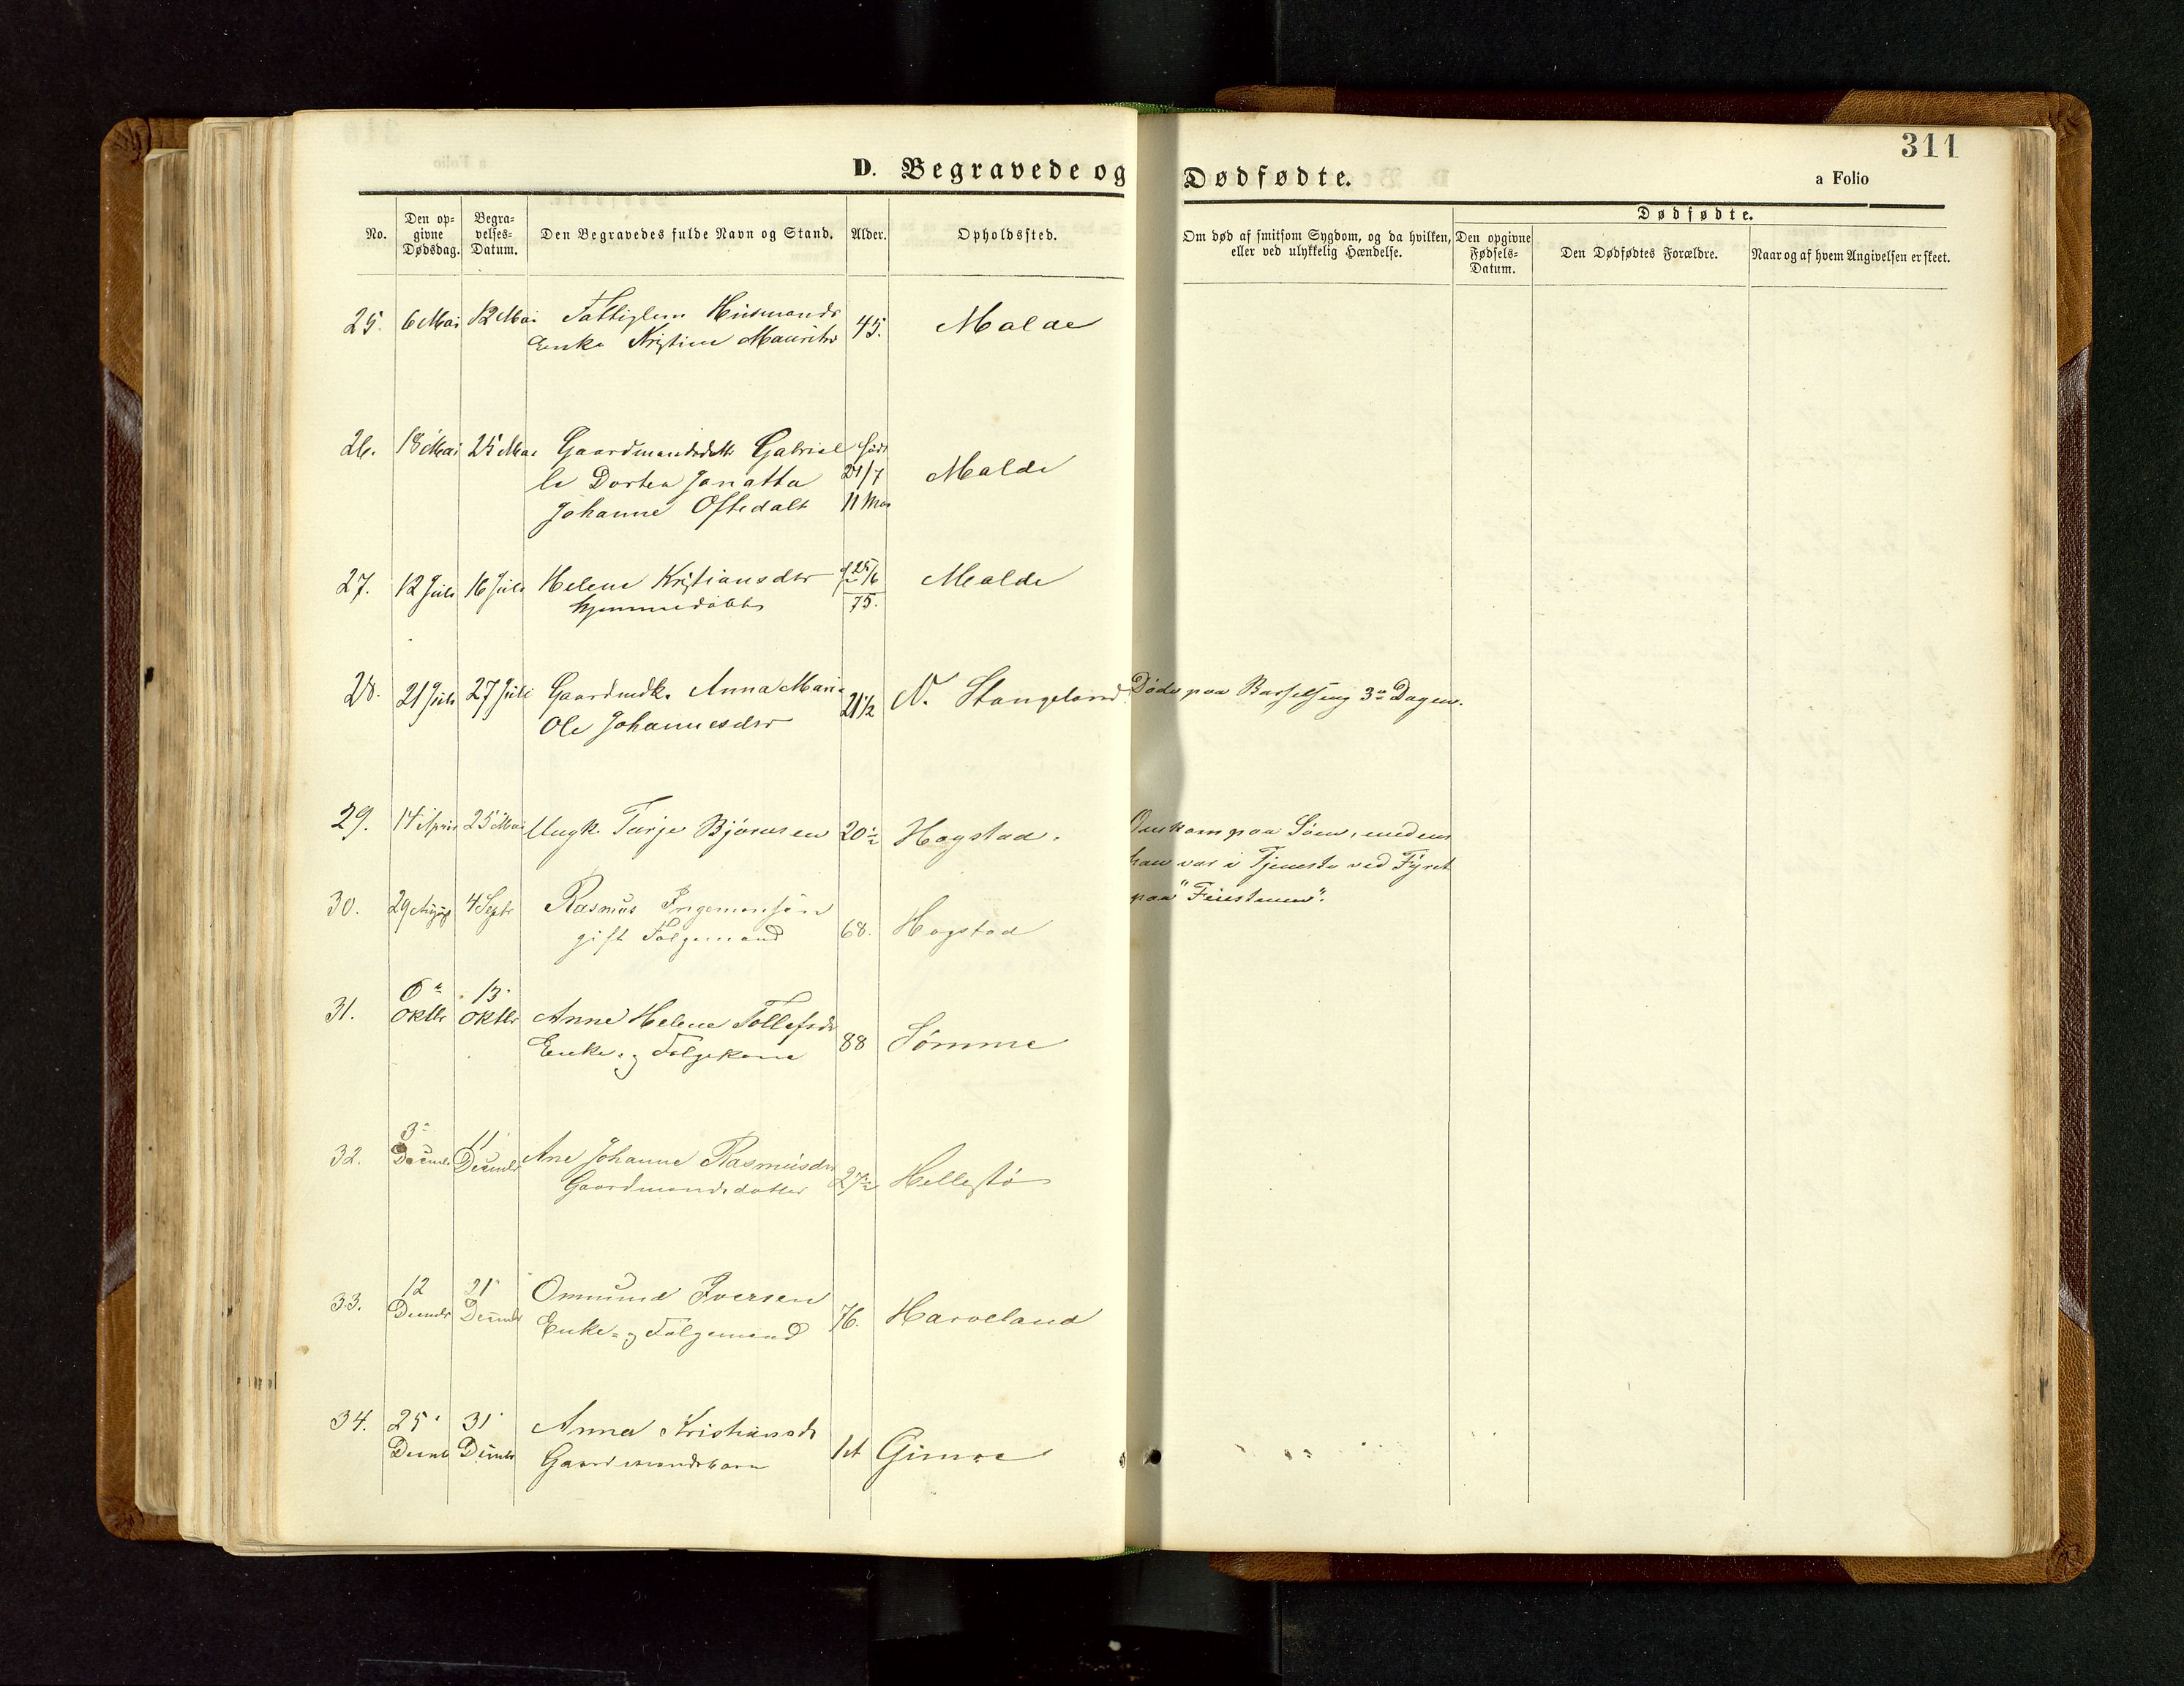 311
D. Begravede og Dødfødte.
a Folio
No.
Den op-
givne
Dødsdag.
Begra-
velses-
Datum.
Den Begravedes fulde Navn og Stand.
Alder.
Opholdssted.
Om død af smitsom Sygdom, og da hvilken,
eller ved ulykkelig Hændelse.
Dødfødte.
Den opgivne
Fødsels-
Datum.
Den Dødfødtes Forældre.
Naar og af hvem Angivelsen er skeet.
25. 6 Mai 12 Mai Fattiglem Husmands 45. Malde
Enke Kristine Mauritsdr
26. 18 Mai 25 Mai Gaardmandsdatt. Gabriel født
le Dortea Jonatta 21/7 Malde
Johanne Oftedalt 11 Mdr
27. 12 Juli 16 Juli Helene Kristiansdtr f. 25/6 Malde
hjemmedøbt 75.
28. 21 Juli 27 Juli Gaardmdk. Anna Marie 21 1/2 N. Stangeland Døde paa Barselseng 3die Dagen.
Ole Johannesdtr
29. 14 April 25 Mai Ungk. Tarje Bjørnsen 20 1/2 Hogstad. Omkom paa Søen, medens
han var i Tjeneste ved Fyret
paa "Feiestenen".
30. 29 August 4 Septr Rasmus Ingemonsøn 68. Hogstad
gift Folgemand
31. 6te Oktbr 13. Oktbr Anne Helene Tollefsdr 88 Sømme
Enke- og Folgekone
32. 3. Decembr 11. Decembr Ane Johanne Rasmusdr 27 1/2 Hellestø
Gaardmandsdatter
33. 12 Decmbr 21. Decmbr Ommund Iversen 76. Harveland
Enke- og Folgemand
34. 25. Decmbr 31. Decmbr Anna Kristiansdr Gimre
Gaardmandsbarn